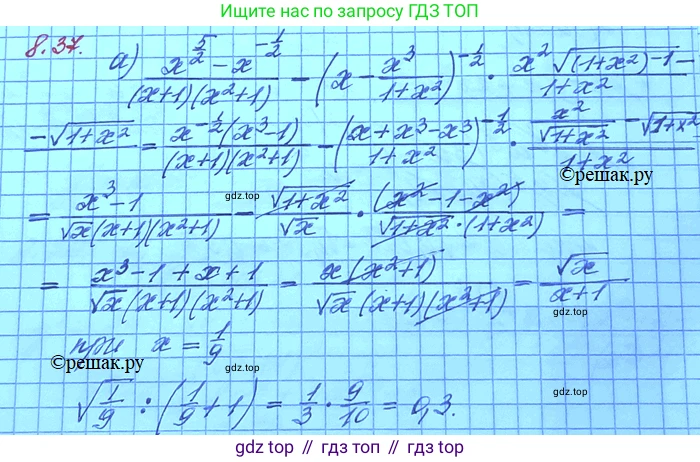 Ищите нас по запросу ГДЗ ТОП
8.37. а) (x^(5/2) - x^(-1/2))/((x+1)(x²+1)) - (x - x³/(1+x²))^(-1/2) · (x²√((1+x²)^(-1)) -
-√(1+x²))/(1+x²) = (x^(-1/2)(x³-1))/((x+1)(x²+1)) - ((x+x³-x³)/(1+x²))^(-1/2) · (x²/√(1+x²) - √(1+x²))/(1+x²)
©решак.ру
gdz.top
= (x³-1)/(√x(x+1)(x²+1)) - √(1+x²)/√x · (x²-1-x²)/(√(1+x²)·(1+x²)) =
= (x³-1+x+1)/(√x(x+1)(x²+1)) = x(x²+1)/(√x(x+1)(x²+1)) = √x/(x+1)
gdz.top
gdz.top
при x = 1/9
©решак.ру
gdz.top
√(1/9) : (1/9+1) = 1/3 · 9/10 = 0,3.
gdz top // гдз топ // gdz.top